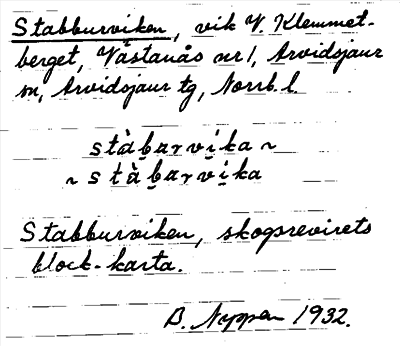 Stabburviken, vik V. Klemmet-
berget, Västanås nr 1, Arvidsjaur
sn, Arvidsjaur tg, Norrb. l.
stàb̲arvi̲ka ~
~ stàb̲arvi̲ka
Stabburviken, skogsrevirets
block-karta.
B. Nyppen 1932.